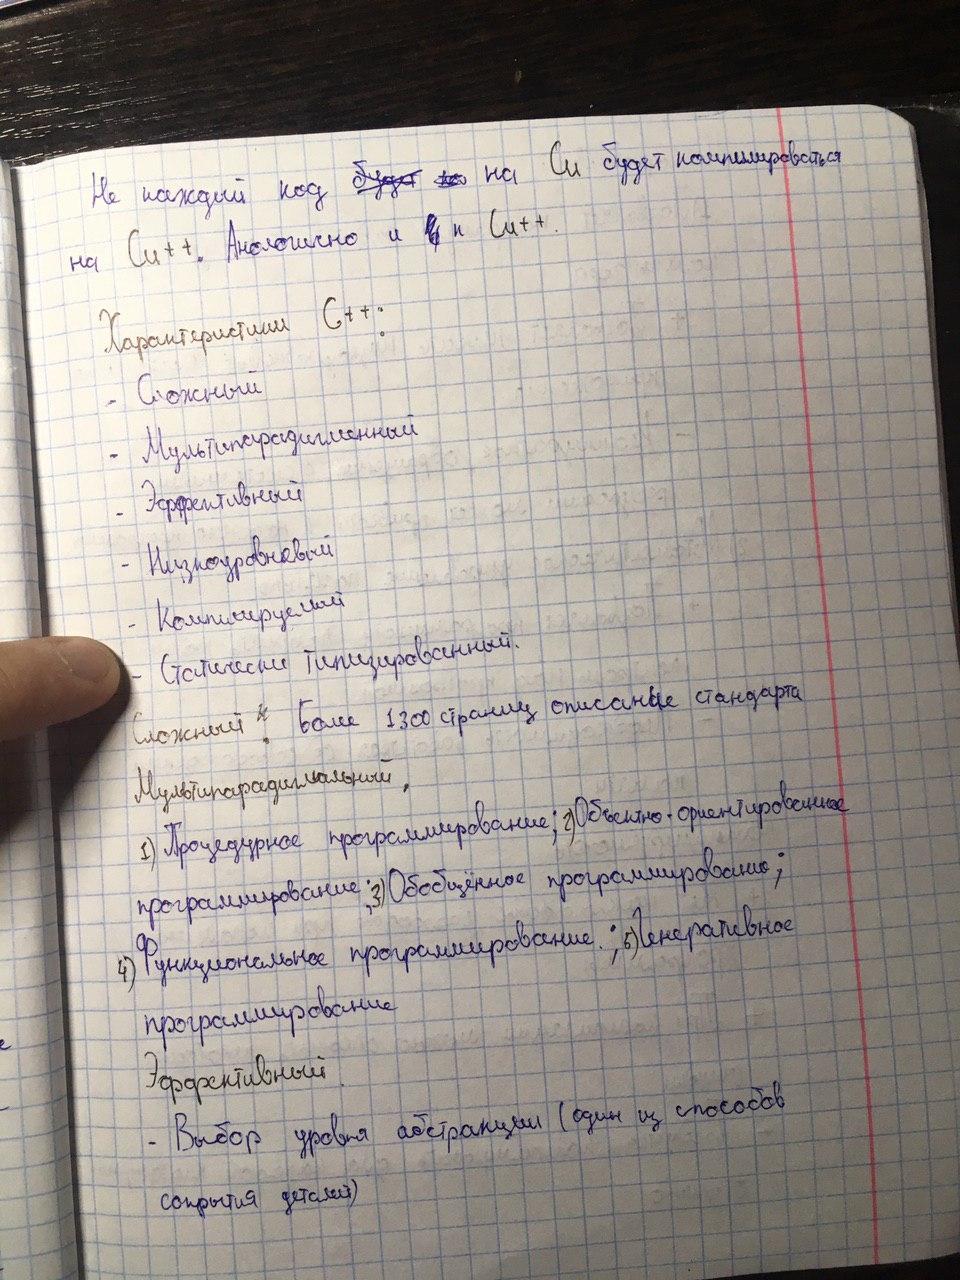 Не каждый код будет на на Си будет компилироваться
на Си++. Аналогично и к Си++.
Характеристики С++:
- Сложный
- Мультипарадигменный
- Эффективный
- Низкоуровневый
- Компилируемый
- Статически типизированный.
Сложный: Более 1300 страниц описание стандарта
Мультипарадигмальный.
1) Процедурное программирование; 2) Объектно-ориентированное
программирование; 3) Обобщённое программирование;
4) Функциональное программирование.; 5) Генеративное
программирование
Эффективный.
- Выбор уровня абстракции (один из способов
сокрытия деталей)